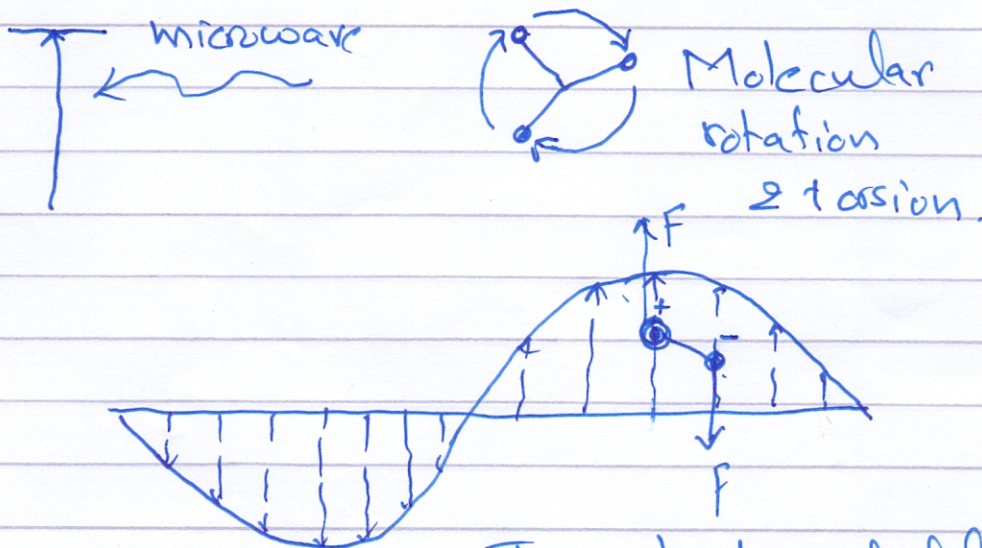 microwave
Molecular
rotation
& torsion.
F
+
-
F